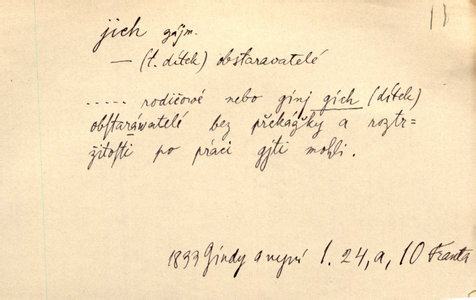 jich zájm.
— (t. dítek) obstaravatelé
..... rodičové nebo ginj gich (dítek)
obstaráwatelé bez překážky a roztr=
žitosti po práci gjti mohli.
1833 Gindy a nynj 1. 24, a, 10 Franta